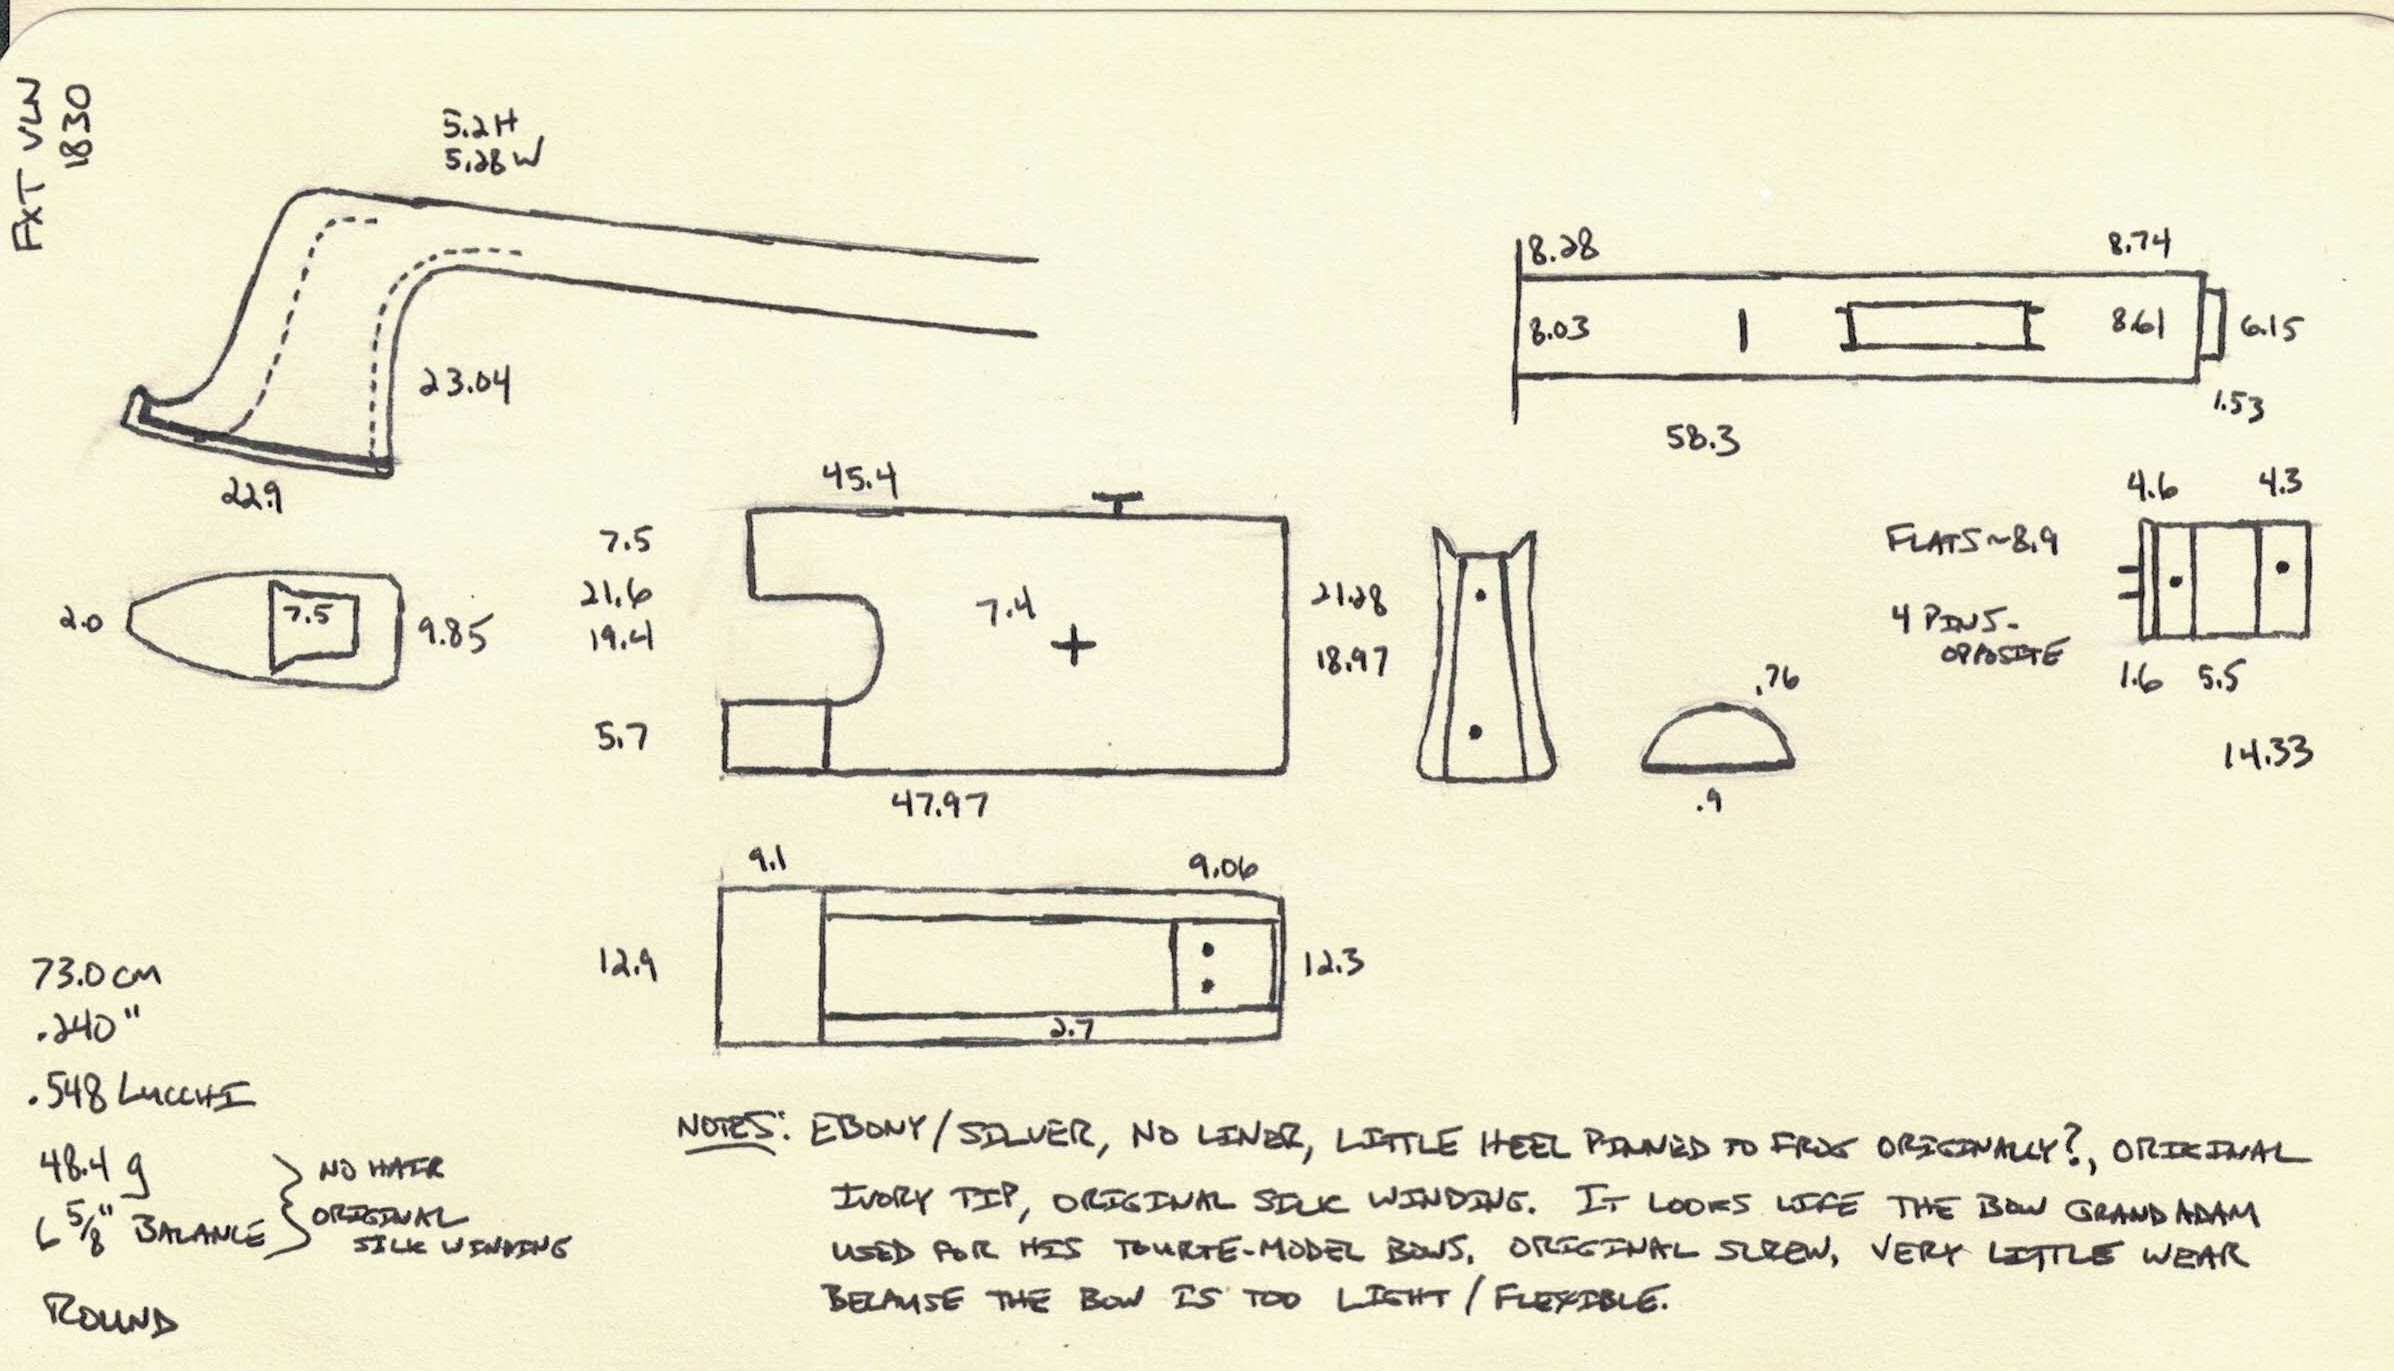 FXT VLN
1830
5.2H
5.28W
23.04
22.9
8.28
8.74
8.03
8.61
6.15
1.53
58.3
2.0
7.5
9.85
45.4
7.5
21.6
19.4
5.7
7.4
47.97
21.28
18.97
.76
.9
4.6
4.3
FLATS ~8.9
4 PINS-
OPPOSITE
1.6
5.5
14.33
9.1
9.06
12.9
12.3
2.7
73.0 CM
.240"
.548 LUCCHI
48.4 g
6 5/8" BALANCE
NO HAIR
ORIGINAL
SILK WINDING
ROUND
NOTES: EBONY/SILVER, NO LINER, LITTLE HEEL PINNED TO FROG ORIGINALLY?, ORIGINAL
IVORY TIP, ORIGINAL SILK WINDING. IT LOOKS LIKE THE BOW GRAND ADAM
USED FOR HIS TOURTE-MODEL BOWS. ORIGINAL SCREW, VERY LITTLE WEAR
BECAUSE THE BOW IS TOO LIGHT/FLEXIBLE.